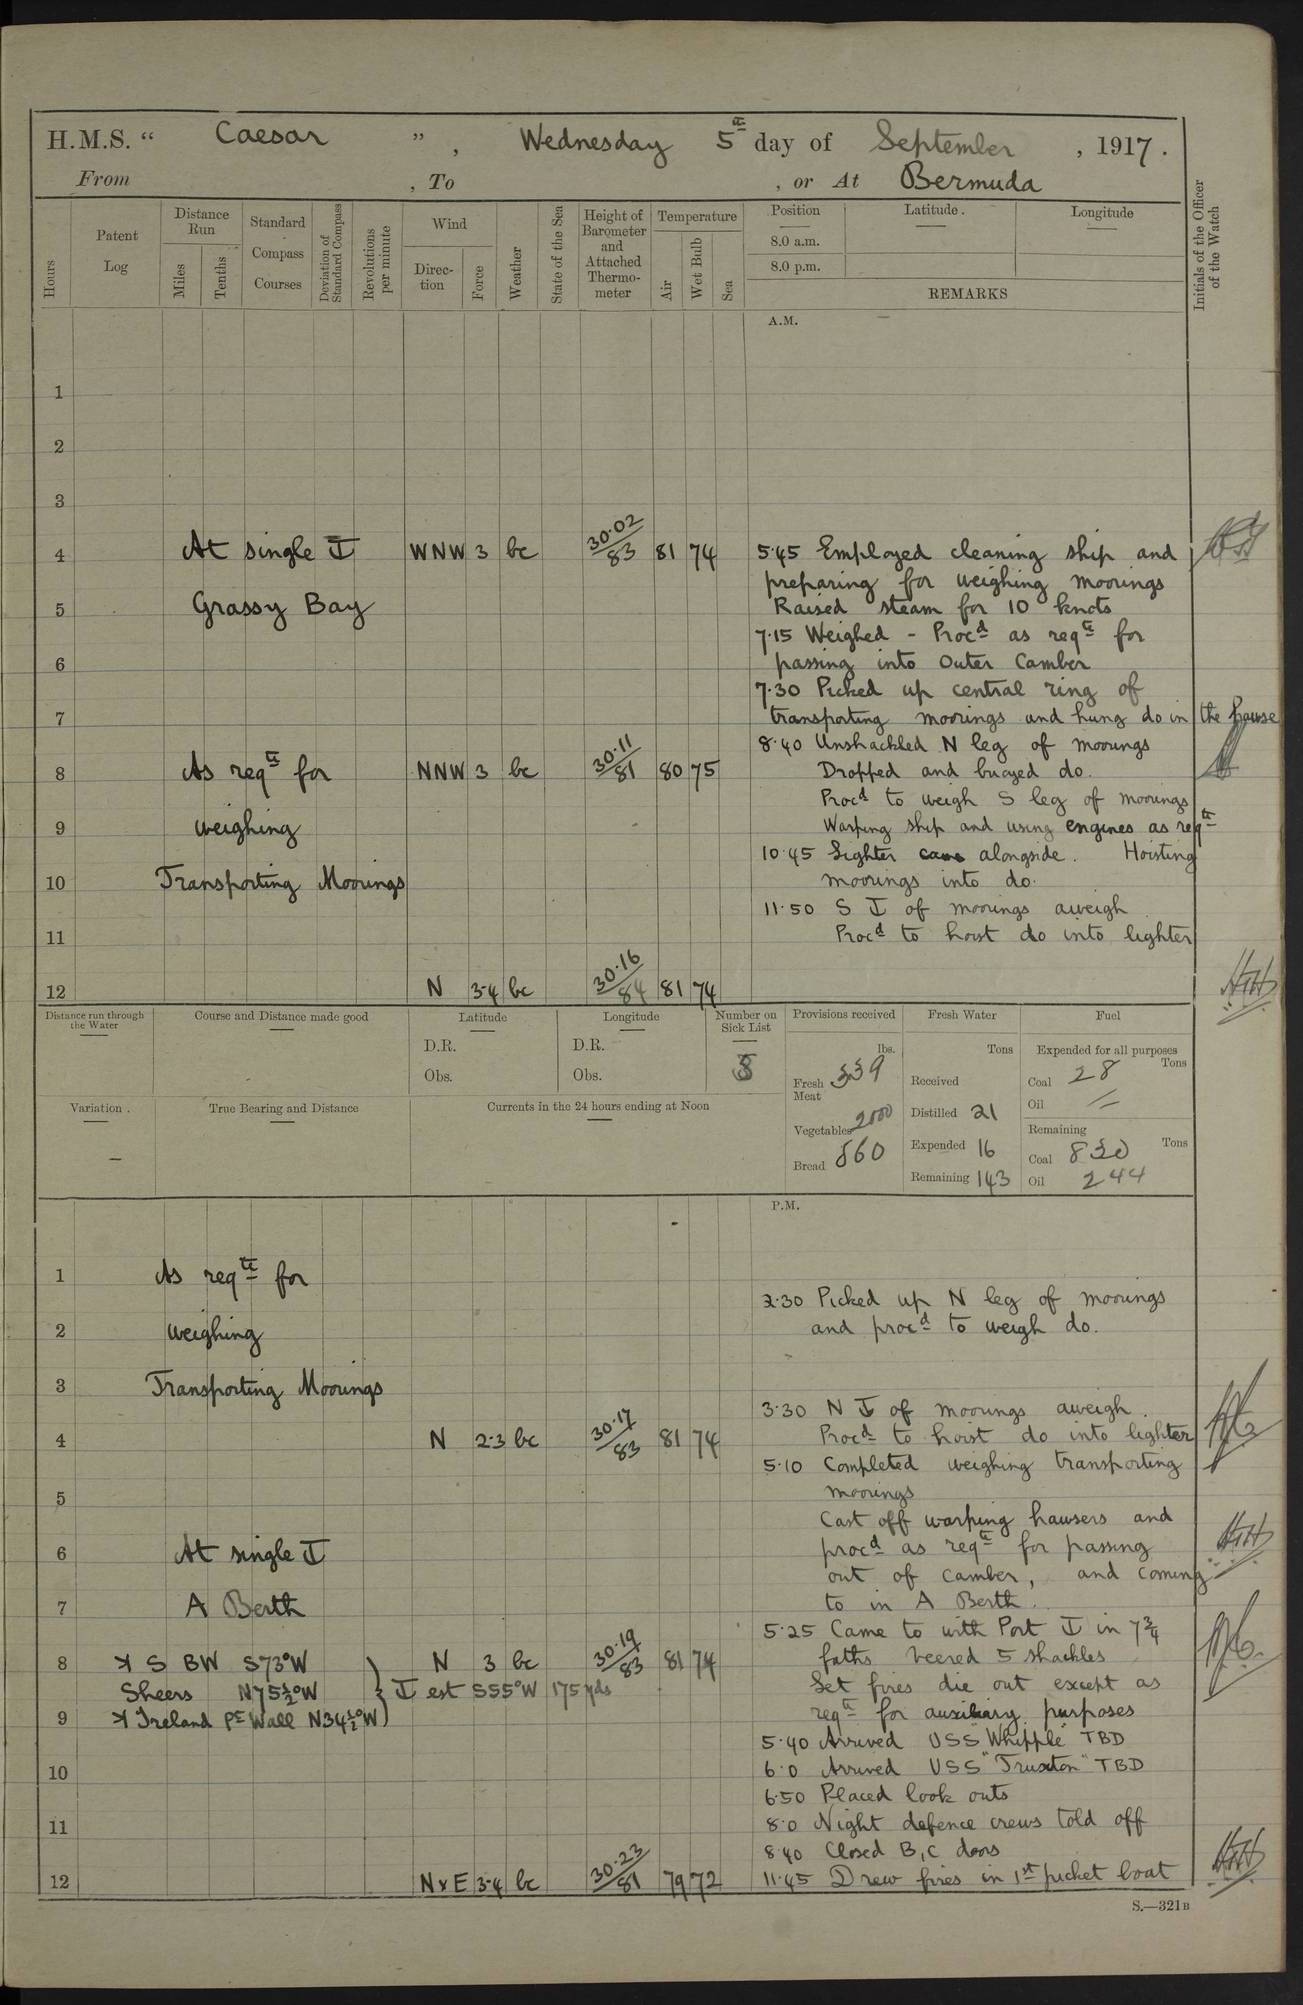 H.M.S. " Caesar ", Wednesday 5th day of September, 1917.
From , To , or At Bermuda
Hours
Patent Log
Distance Run
Miles
Tenths
Standard Compass Courses
Deviation of Standard Compass
Revolutions per minute
Wind
Direction
Force
Weather
State of the Sea
Height of Barometer and Attached Thermometer
Temperature
Air
Wet Bulb
Sea
Position
8.0 a.m.
8.0 p.m.
Latitude.
Longitude
REMARKS
Initials of the Officer of the Watch
A.M.
1
2
3
4 At single ⚓ WNW 3 bc 30·02/83 81 74
5 Grassy Bay
6
7
8 As reqte for NNW 3 bc 30·11/81 80 75
9 weighing
10 Transporting Moorings
11
12 N 3·4 bc 30·16/84 81 74
5·45 Employed cleaning ship and
preparing for weighing moorings
Raised steam for 10 knots
7·15 Weighed - Procd as reqte for
passing into Outer Camber
7·30 Picked up central ring of
transporting moorings and hung do in the hawse
8·40 Unshackled N leg of moorings
Dropped and buoyed do.
Procd to weigh S leg of moorings
Warping ship and using engines as reqte
10·45 Lighter came alongside. Hoisting
moorings into do.
11·50 S ⚓ of moorings aweigh
Procd to hoist do into lighter
Distance run through the Water
Course and Distance made good
Latitude
D.R.
Obs.
Longitude
D.R.
Obs.
Number on Sick List
Provisions received
lbs.
Fresh Meat 339
Vegetables 2000
Bread 860
Fresh Water
Tons
Received
Distilled 21
Expended 16
Remaining 143
Fuel
Expended for all purposes
Tons
Coal 28
Oil
Remaining
Tons
Coal 830
Oil 244
Variation.
—
True Bearing and Distance
Currents in the 24 hours ending at Noon
P.M.
1 As reqte for
2 weighing
3 Transporting Moorings
4 N 2·3 bc 30·17/83 81 74
5
6 At single ⚓
7 A Berth
8 S BW S73°W N 3 bc 30·19/83 81 74
Sheers N75½°W } ⚓ est S55°W 175 yds
9 Ireland Pt Wall N34½°W
10
11
12 N x E 3·4 bc 30·23/81 79 72
2·30 Picked up N leg of moorings
and procd to weigh do.
3·30 N ⚓ of moorings aweigh.
Procd to hoist do into lighter
5·10 Completed weighing transporting
moorings
Cast off warping hawsers and
procd as reqte for passing
out of camber, and coming
to in A Berth.
5·25 Came to with Port ⚓ in 7¾
faths veered 5 shackles
Let fires die out except as
reqte for auxiliary purposes
5·40 Arrived USS "Whipple" TBD
6·0 Arrived USS "Truxton" TBD
6·50 Placed look outs
8·0 Night defence crews told off
8·40 Closed B, C doors
11·45 Drew fires in 1st picket boat
S.—321B